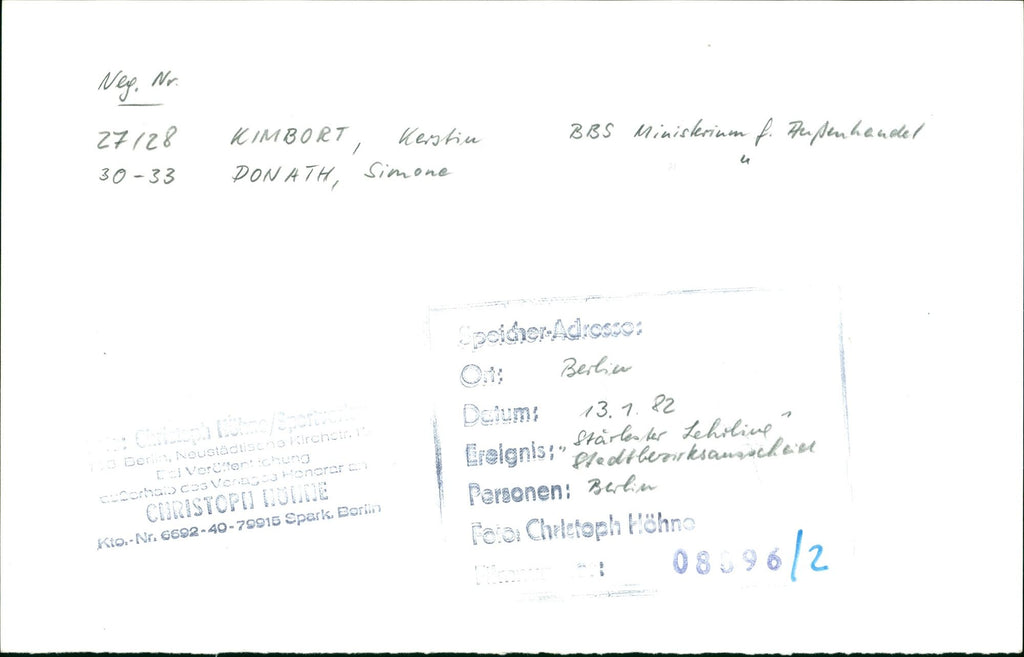 Neg. Nr.
27/28 KIMBORT, Kerstin BBS Ministerium f. Außenhandel
30-33 DONATH, Simone "
Speicher-Adresse:
Ort: Berlin
Datum: 13.1.82
Ereignis: "Stärkster Lehrling"
Stadtbezirksausscheid
Personen: Berlin
Foto: Christoph Höhne
08 96/2
Christoph Höhne/Sportverlag
Berlin, Neustädtische Kirchstr. 15
Bei Veröffentlichung
außerhalb des Verlages Honorar an
CHRISTOPH HÖHNE
Kto.-Nr. 6692-40-79915 Spark. Berlin